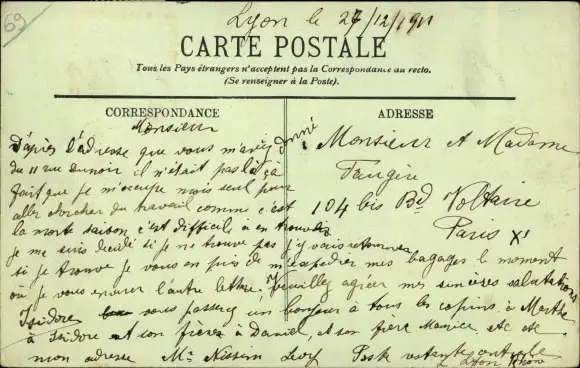 69
Lyon le 27/12/1911
CARTE POSTALE
Tous les Pays étrangers n'acceptent pas la Correspondance au recto.
(Se renseigner à la Poste).
CORRESPONDANCE
ADRESSE
Monsieur
d'après l'adresse que vous m'aviez donné
du 11 rue Dunoir il n'était pas là ça
fait que je m'occupe mais seul pour
aller chercher du travail comme c'est
la morte saison c'est difficile à en trouver
je me suis décidé si je ne trouve pas j'y vais retourner
si je trouve je vous en pris de m'expédier mes bagages le moment
où je vous enverer l'autre lettre. Veuillez agréer mes sincères salutations
Isidore vous passerez un bonjour à tous les copins à Marthe
à Isidore et son frère à Daniel, et son frère Maurice, etc etc
mon adresse Mr Nissim Levy Poste restante centrale
Lyon Rhône
Monsieur et Madame
Faugère
104 bis Bd Voltaire
Paris XI